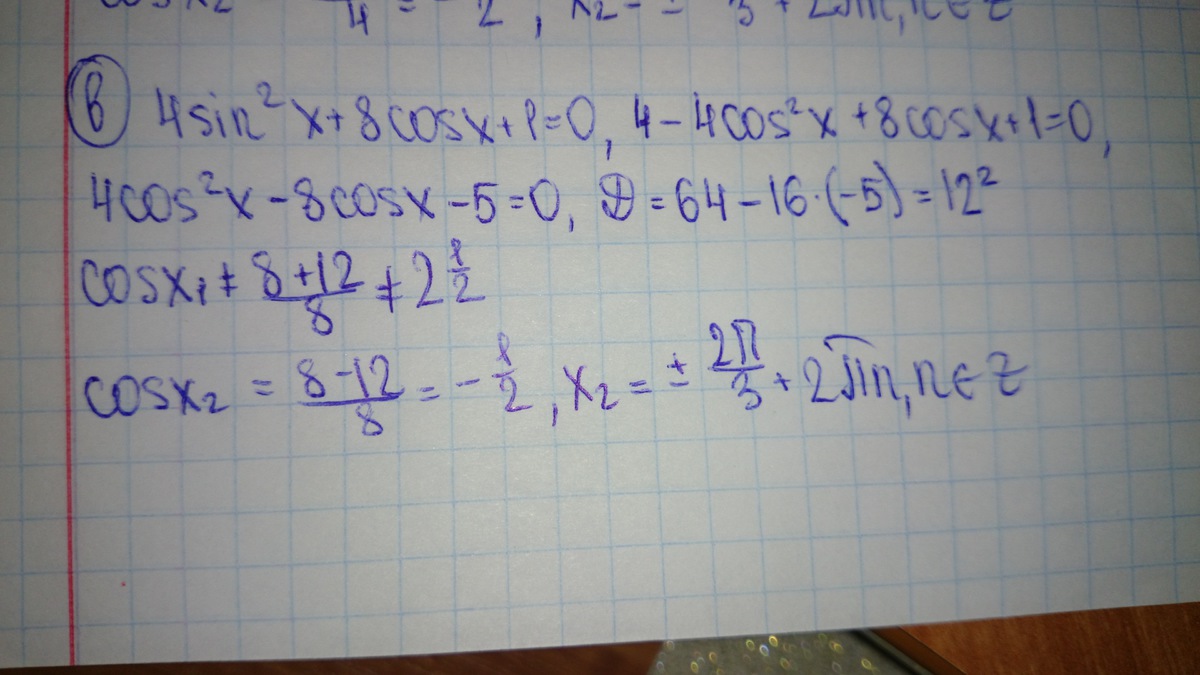 cosx₂ 4 = - 2, x₂ = ± 3 + 2πn, n ∈ Z
в) 4sin²x+8cosx+1=0, 4-4cos²x+8cosx+1=0,
4cos²x-8cosx-5=0, D=64-16·(-5)=12²
cosx₁ ≠ (8+12)/8 ≠ 2 1/2
cosx₂ = (8-12)/8 = -1/2, x₂ = ± 2π/3 + 2πn, n ∈ Z